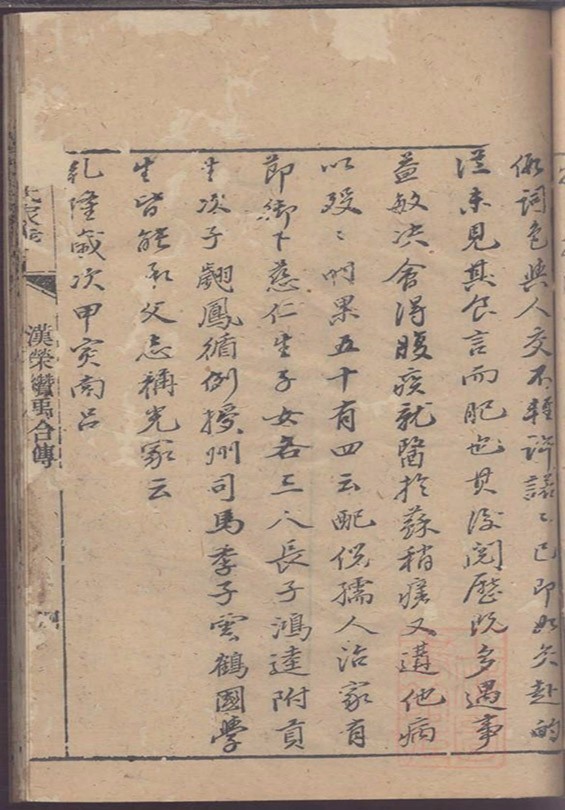 假詞色與人交不輕許諾〻已即如矢赴的
從未見其食言而肥也其後閱歷既多遇事
益敏決會得腹疾就醫於蘇稍痊又遘他病
以歿〻時果五十有四云配倪孺人治家有
節御下慈仁生子女各三人長子鴻逵附貢
生次子翽鳳循例授州司馬季子雲鶴國學
生皆能承父志稱克家云
乾隆歲次甲寅南呂
漢榮繼禹合傳